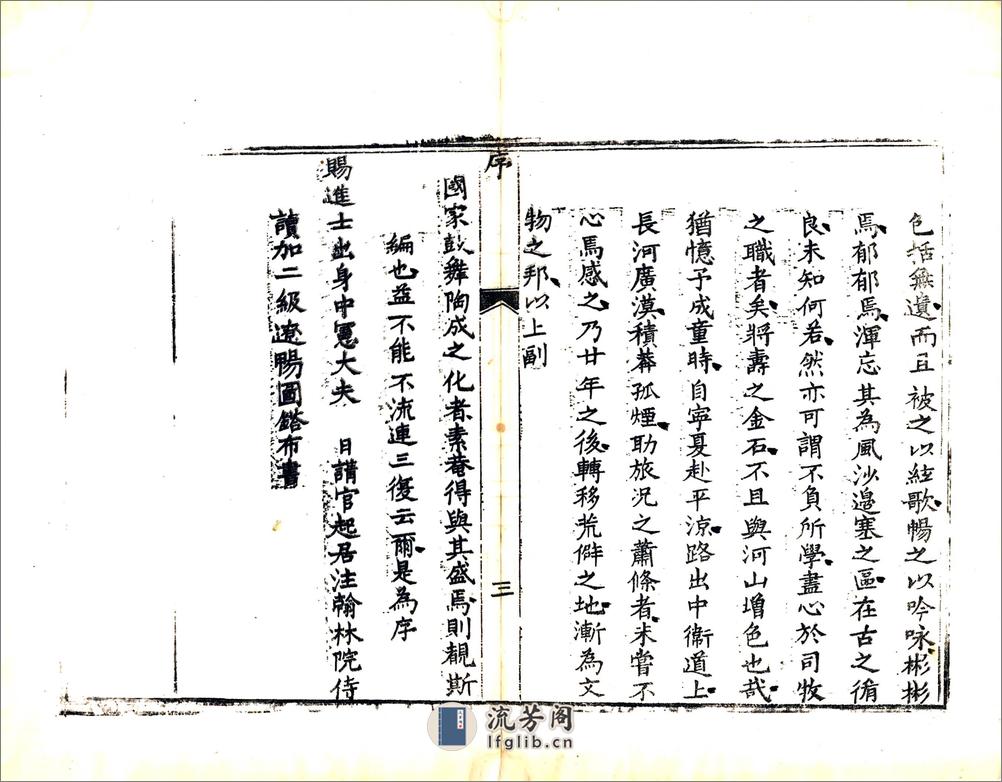 色括無遺而且被之以絃歌暢之以吟咏彬彬
焉郁郁焉渾忘其為風沙邊塞之區在古之循
良未知何若然亦可謂不負所學盡心於司牧
之職者矣將壽之金石不且與河山增色也哉
猶憶予成童時自寧夏赴平涼路出中衞道上
長河廣漠積莽孤煙助旅況之蕭條者未嘗不
心焉感之乃廿年之後轉移荒僻之地漸為文
物之邦以上副
序
三
國家鼓舞陶成之化者素菴得與其盛焉則覩斯
編也益不能不流連三復云爾是為序
賜進士出身中憲大夫 日講官起居注翰林院侍
讀加二級遼陽圖鎝布書
流芳阁
lfglib.cn